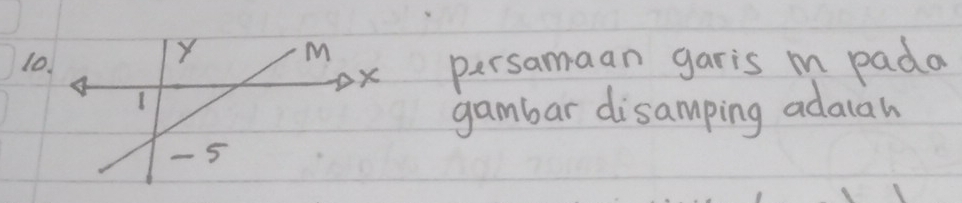 10.
Y
M
X
1
-5
persamaan garis m pada
gambar disamping adalah